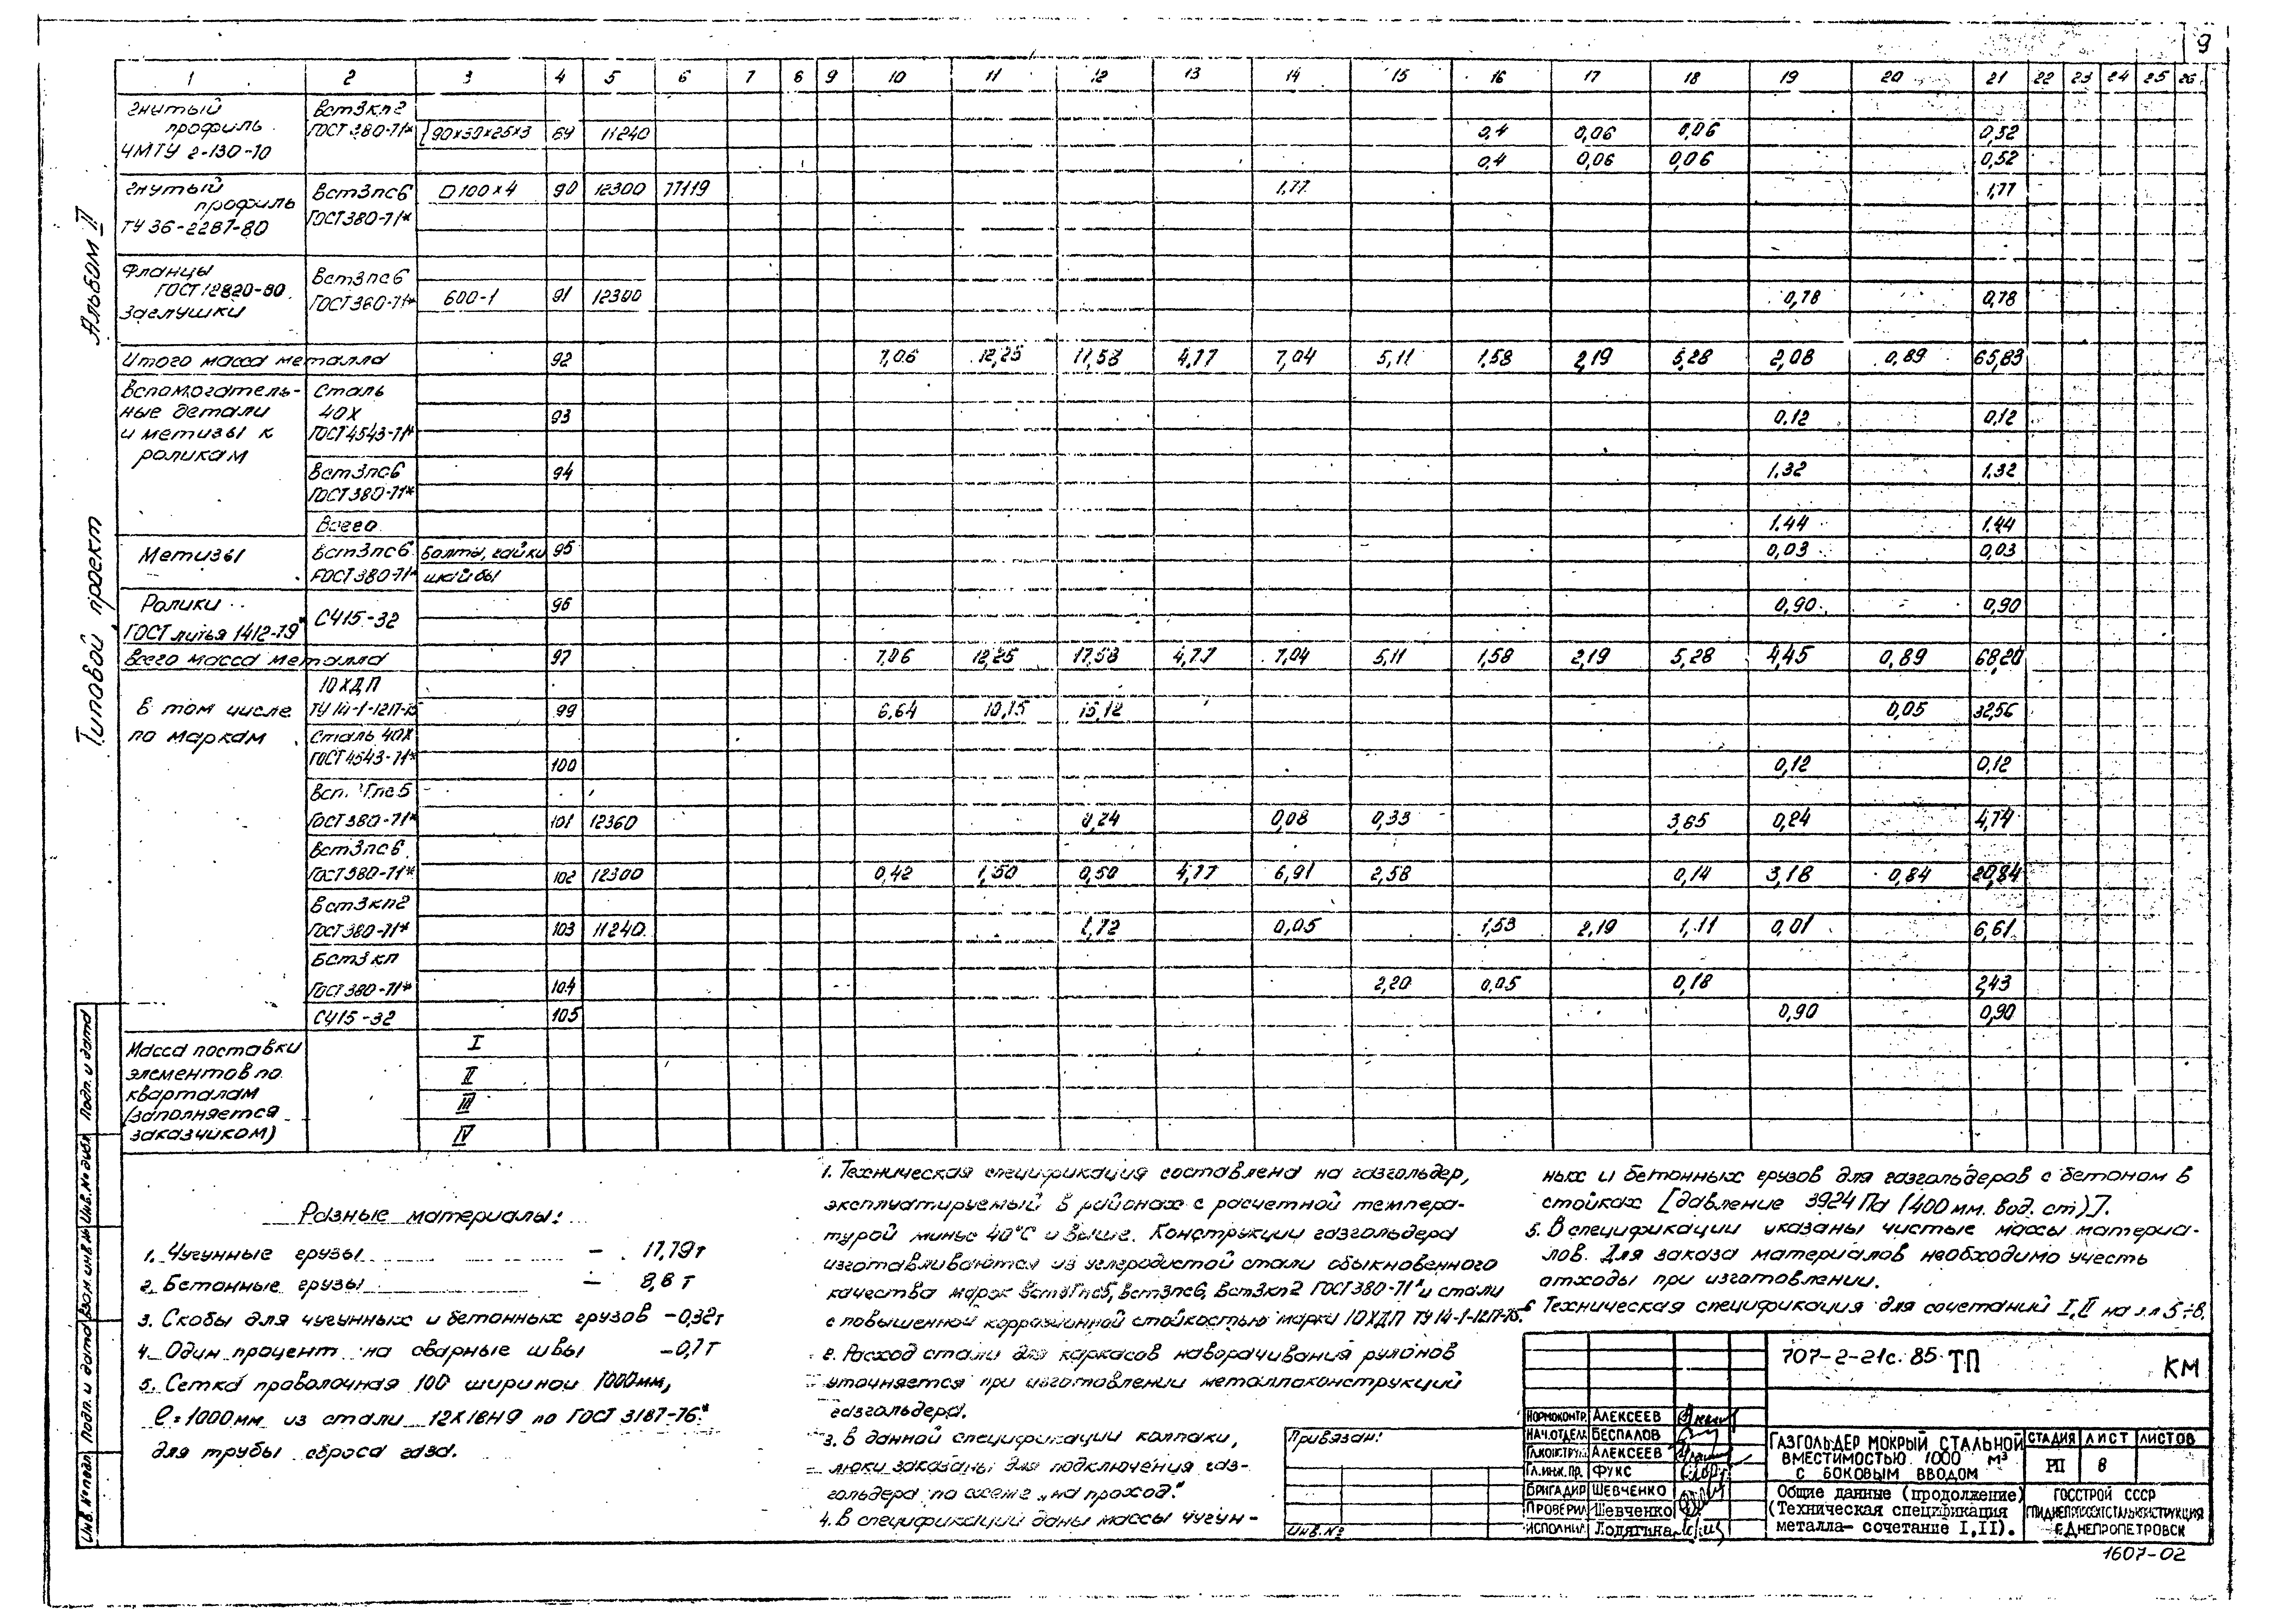 9
1 2 3 4 5 6 7 8 9 10 11 12 13 14 15 16 17 18 19 20 21 22 23 24 25 26
Гнутый профиль ЧМТУ 2-130-70
Вст3кп2 ГОСТ 380-71*
[90×50×25×3 89 11240 0,4 0,06 0,06 0,52
0,4 0,06 0,06 0,52
Гнутый профиль ТУ 36-2287-80
Вст3пс6 ГОСТ 380-71*
□100×4 90 12300 77119 1,77 1,77
Фланцы ГОСТ 12820-80 заглушки
Вст3пс6 ГОСТ 380-71*
600-1 91 12300 0,78 0,78
Итого масса металла 92 7,06 12,25 17,58 4,77 7,04 5,11 1,58 2,19 5,28 2,08 0,89 65,83
Вспомогательные детали и метизы к роликам
Сталь 40Х ГОСТ 4543-71*
93 0,12 0,12
Вст3пс6 ГОСТ 380-71*
94 1,32 1,32
Всего 1,44 1,44
Метизы Вст3пс6 ГОСТ 380-71* Болты, гайки шайбы 95 0,03 0,03
Ролики ГОСТ литья 1412-79* СЧ15-32 96 0,90 0,90
Всего масса металла 97 7,06 12,25 17,58 4,77 7,04 5,11 1,58 2,19 5,28 4,45 0,89 68,20
В том числе по маркам
10ХДП ТУ 14-1-1217-75 99 6,64 10,75 15,12 0,05 32,56
Сталь 40Х ГОСТ 4543-71* 100 0,12 0,12
ГОСТ 380-71* 101 12360 0,24 0,08 0,33 3,85 0,24 4,74
Вст3пс6 ГОСТ 380-71* 102 12300 0,42 1,50 0,50 4,77 6,91 2,58 0,14 3,18 0,84 20,84
Вст3кп2 ГОСТ 380-71* 103 11240 1,72 0,05 1,53 2,19 1,11 0,01 6,61
Бст3кп ГОСТ 380-71* 104 2,20 0,05 0,18 2,43
СЧ15-32 105 0,90 0,90
Масса поставки элементов по кварталам (заполняется заказчиком)
I
II
III
IV
Разные материалы:
1. Чугунные грузы – 17,79т
2. Бетонные грузы – 8,8т
3. Скобы для чугунных и бетонных грузов – 0,32т
4. Один процент на сварные швы – 0,7т
5. Сетка проволочная 100 шириной 1000мм,
ℓ=1000мм из стали 12Х18Н9 по ГОСТ 3187-76*
для трубы сброса газа.
1. Техническая спецификация составлена на газгольдер,
эксплуатируемый в районах с расчетной темпера-
турой минус 40°С и выше. Конструкции газгольдера
изготавливаются из углеродистой стали обыкновенного
качества марок Вст3Гпс5, Вст3пс6, Вст3кп2 ГОСТ 380-71* и стали
с повышенной коррозионной стойкостью марки 10ХДП ТУ 14-1-1217-75.
2. Расход стали для каркасов наворачивания рулонов
уточняется при изготовлении металлоконструкций
газгольдера.
3. В данной спецификации колпаки,
люки заказаны для подключения газ-
гольдера по схеме „на проход."
4. В спецификации даны массы чугун-
ных и бетонных грузов для газгольдеров с бетоном в
стойках [давление 3924 Па (400 мм. вод. ст)].
5. В спецификации указаны чистые массы материа-
лов. Для заказа материалов необходимо учесть
отходы при изготовлении.
6 Техническая спецификация для сочетаний I, II на л.л 5÷8.
707-2-21с.85 ТП КМ
Привязан:
Инв.№
Нормоконтр. Алексеев
Нач.отдела Беспалов
Гл.констр. Алексеев
Гл.инж.пр. Фукс
Бригадир Шевченко
Проверил Шевченко
Исполнил Лодягина
Газгольдер мокрый стальной
вместимостью 1000 м³
с боковым вводом
Стадия Лист Листов
РП 8
Общие данные (продолжение)
(Техническая спецификация
металла– сочетание I, II).
ГОССТРОЙ СССР
ГПИ ДНЕПРПРОЕКТСТАЛЬКОНСТРУКЦИЯ
г. ДНЕПРОПЕТРОВСК
1607-02
Альбом II
Типовой проект
Инв.№ подл. Подп. и дата Взам. инв.№ Инв.№ дубл. Подп. и дата